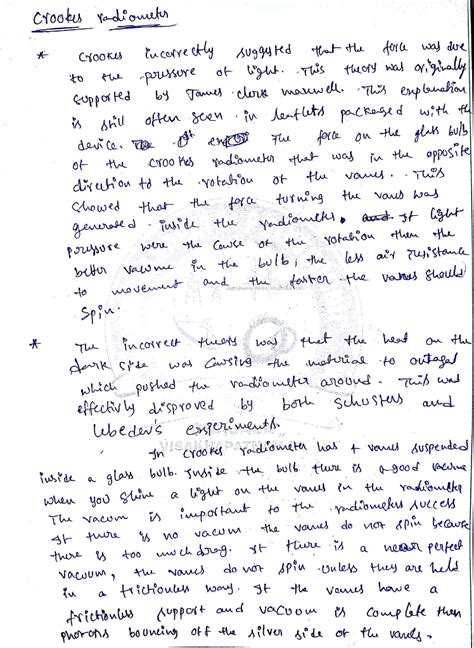 Crookes radiometer
* Crookes incorrectly suggested that the force was due
to the pressure of light. This theory was originally
supported by James clerk maxwell. This explanation
is still often seen in leaflets packaged with the
device. The force on the glass bulb
of the crookes radiometer that was in the opposite
direction to the rotation of the vanes. This
showed that the force turning the vanes was
generated inside the radiometer. If light
pressure were the cause of the rotation then the
better vacume in the bulb, the less air resistance
to movement and the faster the vanes should
Spin.
* The incorrect theory was that the heat on the
dark side was causing the material to outagal
which pushed the radiometer around. This was
effectivly disproved by both schusters and
lebedev's experiments.
In crookes radiometer has 4 vanes suspended
inside a glass bulb. Inside the bulb there is a good vacume
when you shine a light on the vanes in the radiometer
The vacum is important to the radiometers success
If there is no vacum the vanes do not spin because
there is too much drag. If there is a near perfect
vacuum, the vanes do not spin unless they are held
in a frictionless way. If the vanes have a
frictionless support and vacuum is complete then
photons bouncing off the silver side of the vanes.
VISAKHAPATNAM